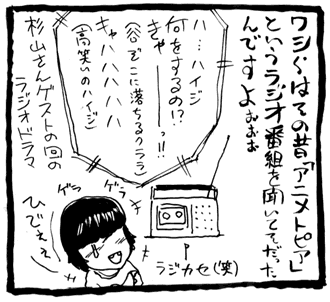 ワシらはその昔「アニメトピア」
というラジオ番組を聞いてそだった
んですよぉぉぉ
ハ…ハイジ
何をするの!?
きゃーーーっ!!
(谷ぞこに落ちるクララ)
キャハハハハ
(高笑いのハイジ)
杉山さんゲストの回の
ラジオドラマ
ゲラ
ゲラ
ひでえぇ
ラジカセ(笑)